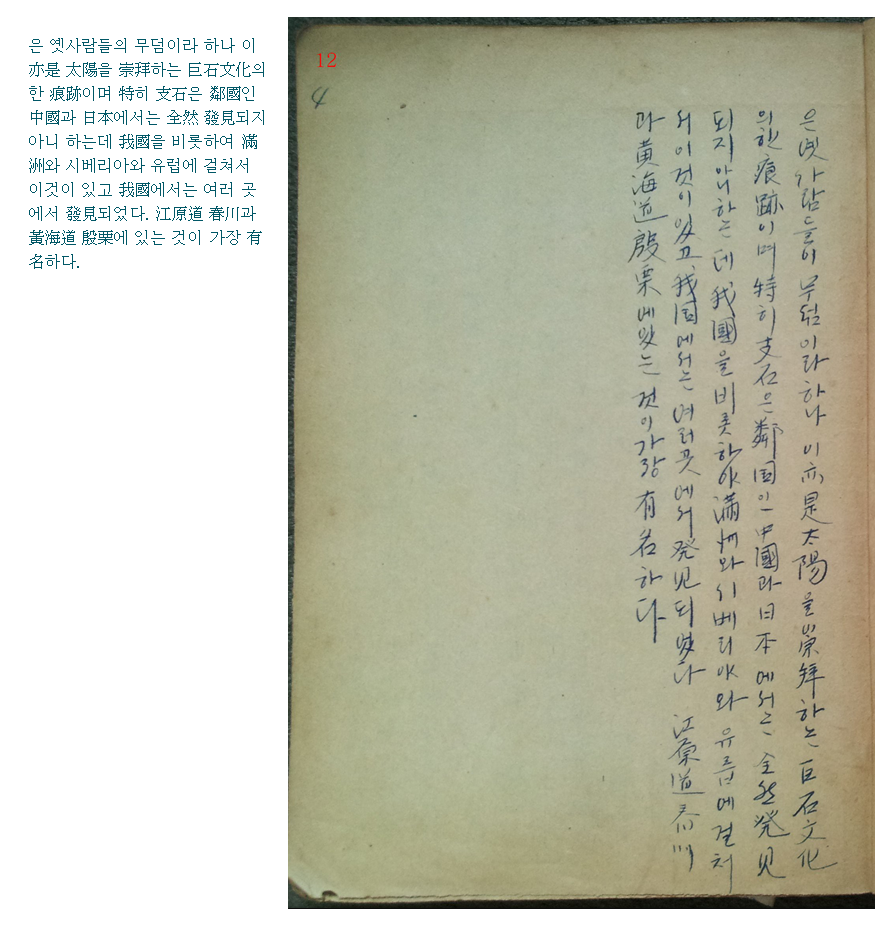 은 옛사람들의 무덤이라 하나 이
亦是 太陽을 崇拜하는 巨石文化의
한 痕跡이며 特히 支石은 鄰國인
中國과 日本에서는 全然 發見되지
아니 하는데 我國을 비롯하여 滿
洲와 시베리아와 유럽에 걸쳐서
이것이 있고 我國에서는 여러 곳
에서 發見되었다. 江原道 春川과
黃海道 殷栗에 있는 것이 가장 有
名하다.
12
4
은 옛사람들이 무덤이라 하나 이 亦是 太陽을 崇拜하는 巨石文化
의 한 痕跡이며 特히 支石은 鄰国인 中國과 日本에서는 全然 発見
되지 아니하는데 我國을 비롯하야 滿洲와 시베리야와 유름에 걸처
서 이것이 있고 我国에서는 여러곳에서 発見되였다 江原道 春川
과 黃海道 殷栗에 있는 것이 가장 有名하다